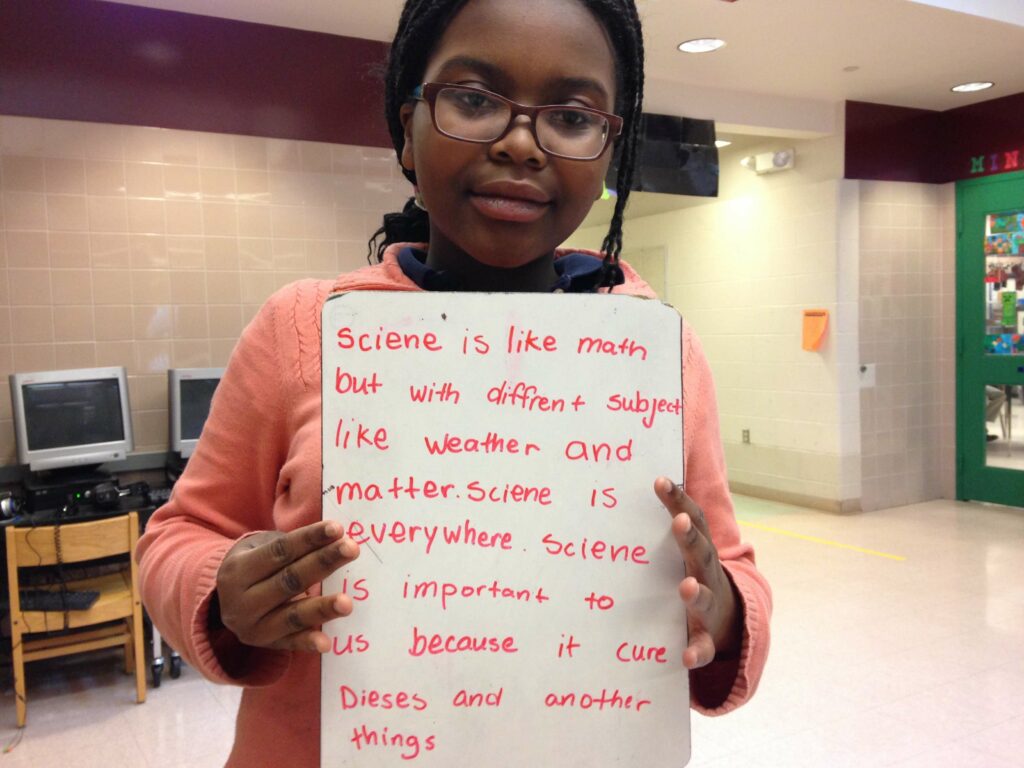 sciene is like math
but with diffrent subject
like weather and
matter. sciene is
everywhere. sciene
is important to
us because it cure
Dieses and another
things
MIN